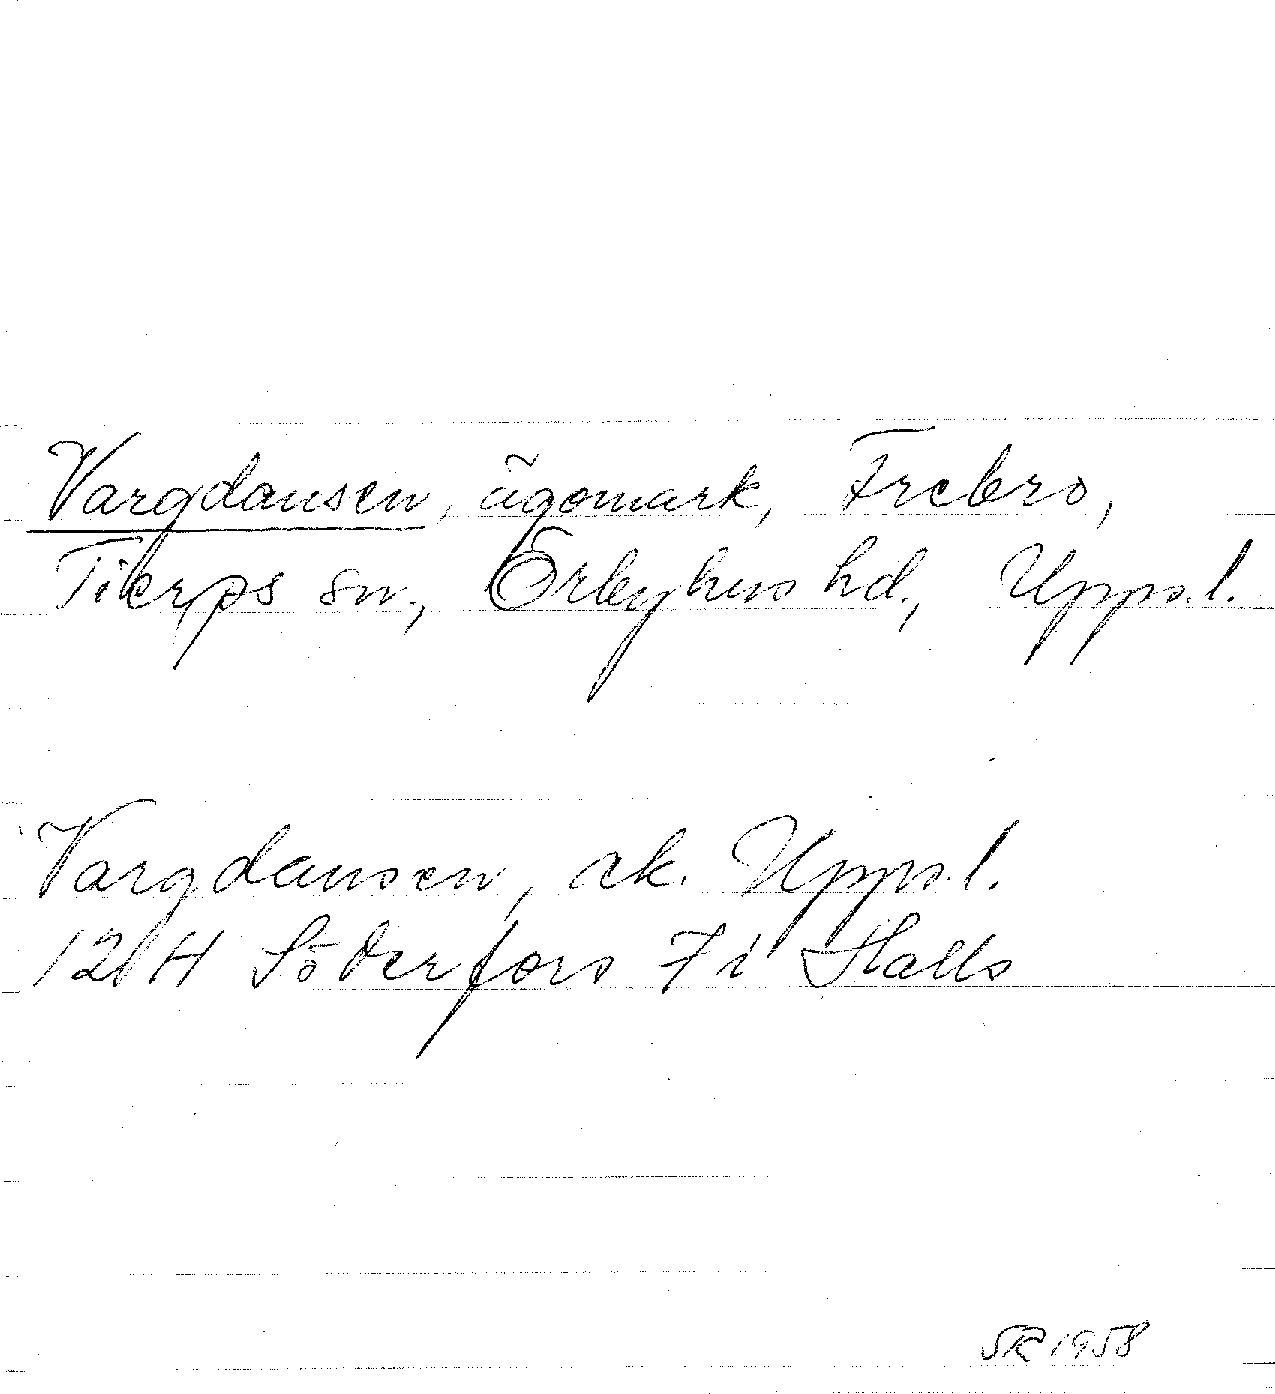 Vargdansen, ägomark, Frebro,
Tierps sn, Örbyhus hd., Upps.l.
Vargdansen, ek. Upps.l.
12H Söderfors 7 i Halls
SR 1958